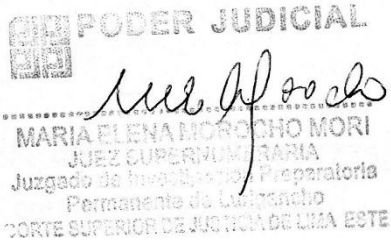 PODER JUDICIAL
MARIA ELENA MOROCHO MORI
JUEZ SUPERNUMERARIA
Juzgado de Investigación Preparatoria
Permanente de Lurigancho
CORTE SUPERIOR DE JUSTICIA DE LIMA ESTE